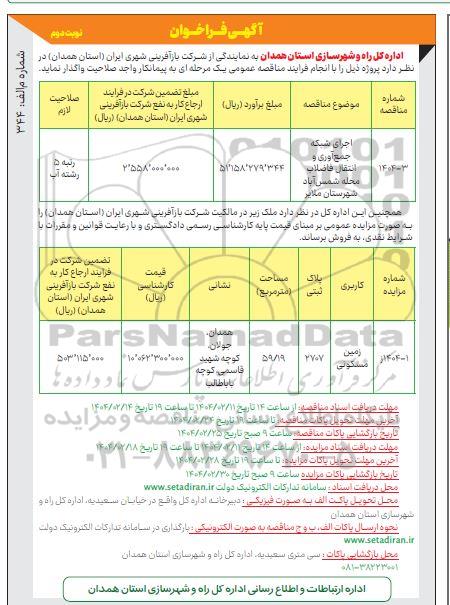 آگهی فراخوان
نوبت دوم
شماره م الف: ۳۴۴
اداره کل راه و شهرسازی استان همدان به نمایندگی از شرکت بازآفرینی شهری ایران (استان همدان) در
نظر دارد پروژه ذیل را با انجام فرایند مناقصه عمومی یک مرحله ای به پیمانکار واجد صلاحیت واگذار نماید.
شماره مناقصه
موضوع مناقصه
مبلغ برآورد (ریال)
مبلغ تضمین شرکت در فرایند ارجاع کار به نفع شرکت بازآفرینی شهری ایران (استان همدان) (ریال)
صلاحیت لازم
۱۴۰۴-۳
اجرای شبکه جمع‌آوری و انتقال فاضلاب محله شمس‌آباد شهرستان ملایر
۵۱٬۱۵۸٬۲۷۹٬۳۴۴
۲٬۵۵۸٬۰۰۰٬۰۰۰
رتبه ۵ رشته آب
همچنین این اداره کل در نظر دارد ملک زیر در مالکیت شرکت بازآفرینی شهری ایران (استان همدان) را
به صورت مزایده عمومی بر مبنای قیمت پایه کارشناسی رسمی دادگستری و با رعایت قوانین و مقررات با
شرایط نقدی، به فروش برساند.
شماره مزایده
کاربری
پلاک ثبتی
مساحت (مترمربع)
نشانی
قیمت کارشناسی (ریال)
تضمین شرکت در فرایند ارجاع کار به نفع شرکت بازآفرینی شهری ایران (استان همدان) (ریال)
۱-۱۴۰۴ز
زمین مسکونی
۲۷۰۷
۵۹/۱۹
همدان، جولان، کوچه شهید قاسمی، کوچه باباطالب
۱۰٬۰۶۲٬۳۰۰٬۰۰۰
۵۰۳٬۱۱۵٬۰۰۰
مهلت دریافت اسناد مناقصه: از ساعت ۱۴ تاریخ ۱۴۰۴/۰۲/۱۱ تا ساعت ۱۹ تاریخ ۱۴۰۴/۰۲/۱۴
آخرین مهلت تحویل پاکات مناقصه: تا ساعت ۱۹ تاریخ ۱۴۰۴/۰۲/۲۴
تاریخ بازگشایی پاکات مناقصه: ساعت ۹ صبح تاریخ ۱۴۰۴/۰۲/۲۵
مهلت دریافت اسناد مزایده: از ساعت ۱۴ تاریخ ۱۴۰۴/۰۲/۱۱ تا ساعت ۱۹ تاریخ ۱۴۰۴/۰۲/۱۸
آخرین مهلت تحویل پاکات مزایده: تا ساعت ۱۹ تاریخ ۱۴۰۴/۰۲/۲۸
تاریخ بازگشایی پاکات مزایده ساعت ۹ صبح تاریخ ۱۴۰۴/۰۲/۳۰
محل دریافت اسناد: سامانه تدارکات الکترونیک دولت www.setadiran.ir
محل تحویل پاکت الف به صورت فیزیکی: دبیرخانه اداره کل واقع در خیابان سعیدیه، اداره کل راه و
شهرسازی استان همدان
نحوه ارسال پاکات الف، ب و ج مناقصه به صورت الکترونیکی: بارگذاری در سامانه تدارکات الکترونیک دولت
www.setadiran.ir
محل بازگشایی پاکات: سی متری سعیدیه، اداره کل راه و شهرسازی استان همدان
۰۸۱-۳۸۲۲۳۰۰۱
اداره ارتباطات و اطلاع رسانی اداره کل راه و شهرسازی استان همدان
ParsNamadData